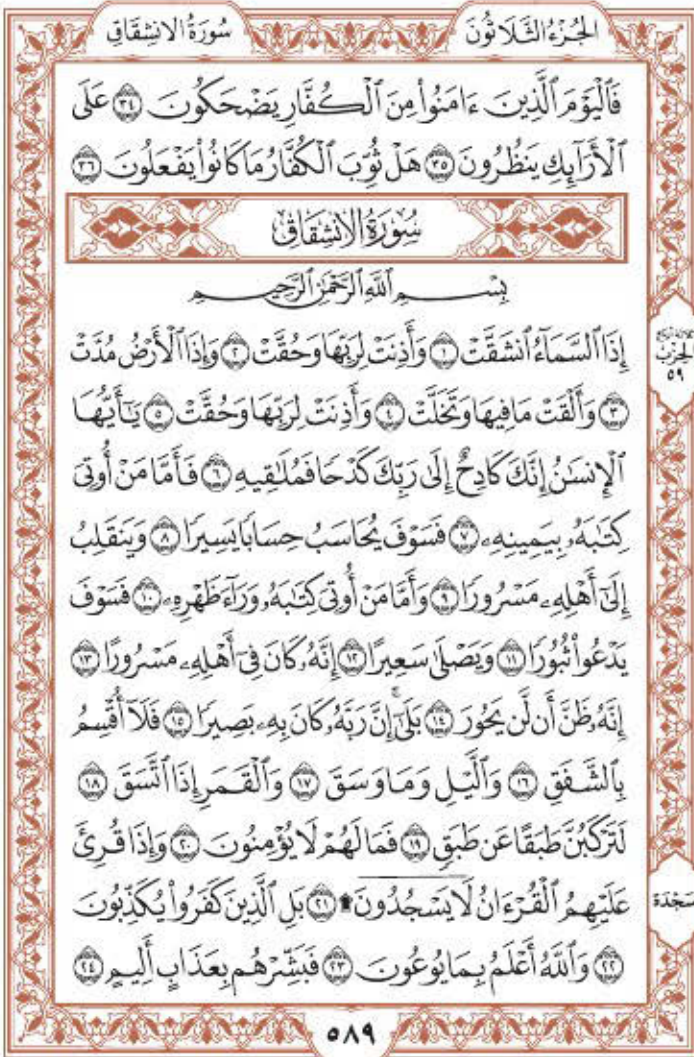 سُورَةُ الانشِقَاقِ
الجُزْءُ الثَّلَاثُونَ
فَٱلْيَوْمَ ٱلَّذِينَ ءَامَنُوا۟ مِنَ ٱلْكُفَّارِ يَضْحَكُونَ ٣٤ عَلَى
ٱلْأَرَآئِكِ يَنظُرُونَ ٣٥ هَلْ ثُوِّبَ ٱلْكُفَّارُ مَا كَانُوا۟ يَفْعَلُونَ ٣٦
سُورَةُ الانشِقَاقِ
بِسْمِ ٱللَّهِ ٱلرَّحْمَٰنِ ٱلرَّحِيمِ
إِذَا ٱلسَّمَآءُ ٱنشَقَّتْ ١ وَأَذِنَتْ لِرَبِّهَا وَحُقَّتْ ٢ وَإِذَا ٱلْأَرْضُ مُدَّتْ
٣ وَأَلْقَتْ مَا فِيهَا وَتَخَلَّتْ ٤ وَأَذِنَتْ لِرَبِّهَا وَحُقَّتْ ٥ يَٰٓأَيُّهَا
ٱلْإِنسَٰنُ إِنَّكَ كَادِحٌ إِلَىٰ رَبِّكَ كَدْحًا فَمُلَٰقِيهِ ٦ فَأَمَّا مَنْ أُوتِىَ
كِتَٰبَهُۥ بِيَمِينِهِۦ ٧ فَسَوْفَ يُحَاسَبُ حِسَابًا يَسِيرًا ٨ وَيَنقَلِبُ
إِلَىٰٓ أَهْلِهِۦ مَسْرُورًا ٩ وَأَمَّا مَنْ أُوتِىَ كِتَٰبَهُۥ وَرَآءَ ظَهْرِهِۦ ١٠ فَسَوْفَ
يَدْعُوا۟ ثُبُورًا ١١ وَيَصْلَىٰ سَعِيرًا ١٢ إِنَّهُۥ كَانَ فِىٓ أَهْلِهِۦ مَسْرُورًا ١٣
إِنَّهُۥ ظَنَّ أَن لَّن يَحُورَ ١٤ بَلَىٰٓۚ إِنَّ رَبَّهُۥ كَانَ بِهِۦ بَصِيرًا ١٥ فَلَآ أُقْسِمُ
بِٱلشَّفَقِ ١٦ وَٱلَّيْلِ وَمَا وَسَقَ ١٧ وَٱلْقَمَرِ إِذَا ٱتَّسَقَ ١٨
لَتَرْكَبُنَّ طَبَقًا عَن طَبَقٍ ١٩ فَمَا لَهُمْ لَا يُؤْمِنُونَ ٢٠ وَإِذَا قُرِئَ
عَلَيْهِمُ ٱلْقُرْءَانُ لَا يَسْجُدُونَ۩ ٢١ بَلِ ٱلَّذِينَ كَفَرُوا۟ يُكَذِّبُونَ
٢٢ وَٱللَّهُ أَعْلَمُ بِمَا يُوعُونَ ٢٣ فَبَشِّرْهُم بِعَذَابٍ أَلِيمٍ ٢٤
الحِزْبِ
٥٩
سَجْدَة
٥٨٩